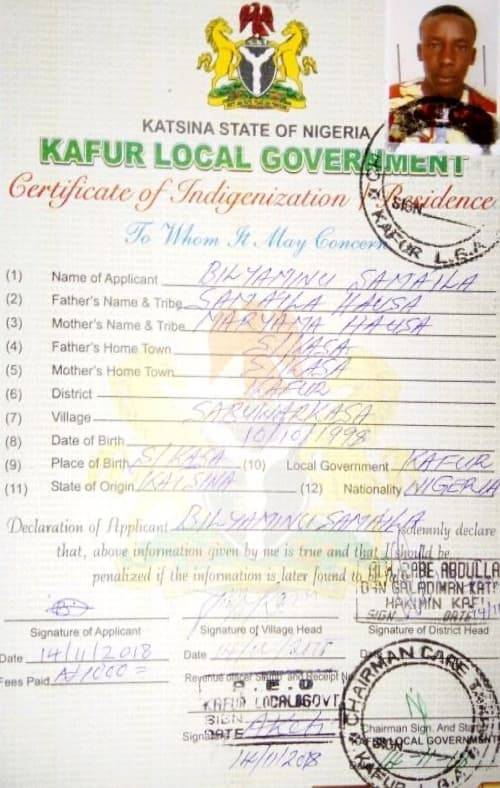 KATSINA STATE OF NIGERIA
KAFUR LOCAL GOVERNMENT
Certificate of Indigenization / Residence
SIGN
KAFUR L.G.A
To Whom It May Concern
(1) Name of Applicant BILYAMINU SAMAILA
(2) Father's Name & Tribe SAMAILA HAUSA
(3) Mother's Name & Tribe MARYAMA HAUSA
(4) Father's Home Town S/KASA
(5) Mother's Home Town S/KASA
(6) District KAFUR
(7) Village SABUWARKASA
(8) Date of Birth 10/10/1998
(9) Place of Birth S/KASA (10) Local Government KAFUR
(11) State of Origin KATSINA (12) Nationality NIGERIA
Declaration of Applicant BILYAMINU SAMAILA solemnly declare
that, above information given by me is true and that I should be
penalized if the information is later found to be
ABDULLA
GALADIMAN KAT
HAKIMIN KAF
SIGN DATE 14/11
Signature of Applicant Signature of Village Head Signature of District Head
Date 14/11/2018 Date 14/11/2018
Fees Paid ₦1000 = Revenue officer Stamp and Receipt No
P.E.O
KAFUR LOCAL GOVT
SIGN
DATE
Sign
14/11/2018
CHAIRMAN CARE
Chairman Sign. And Stamp
KAFUR LOCAL GOVERNMENT
SIGN
KAFUR L.G.A